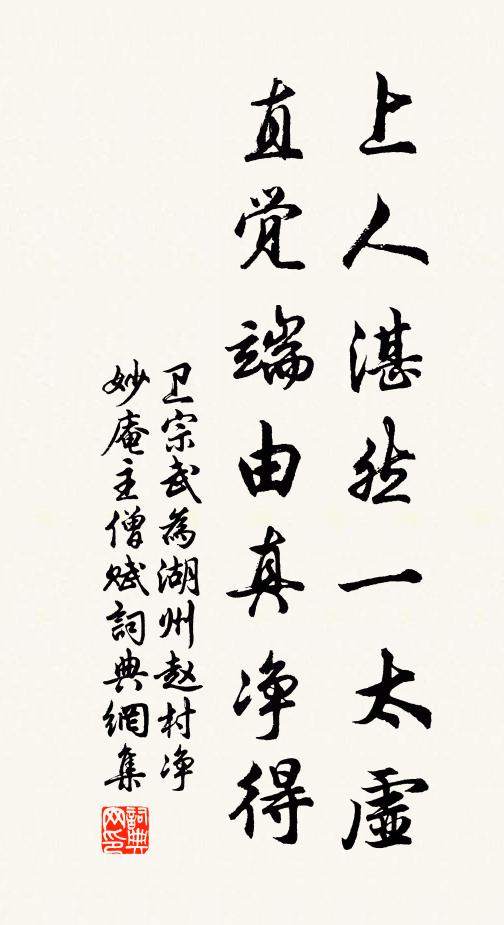 上人湛然一太虚
直觉端由真净得
卫宗武为湖州赵村净
妙庵主僧赋詞典網集
詞典网印